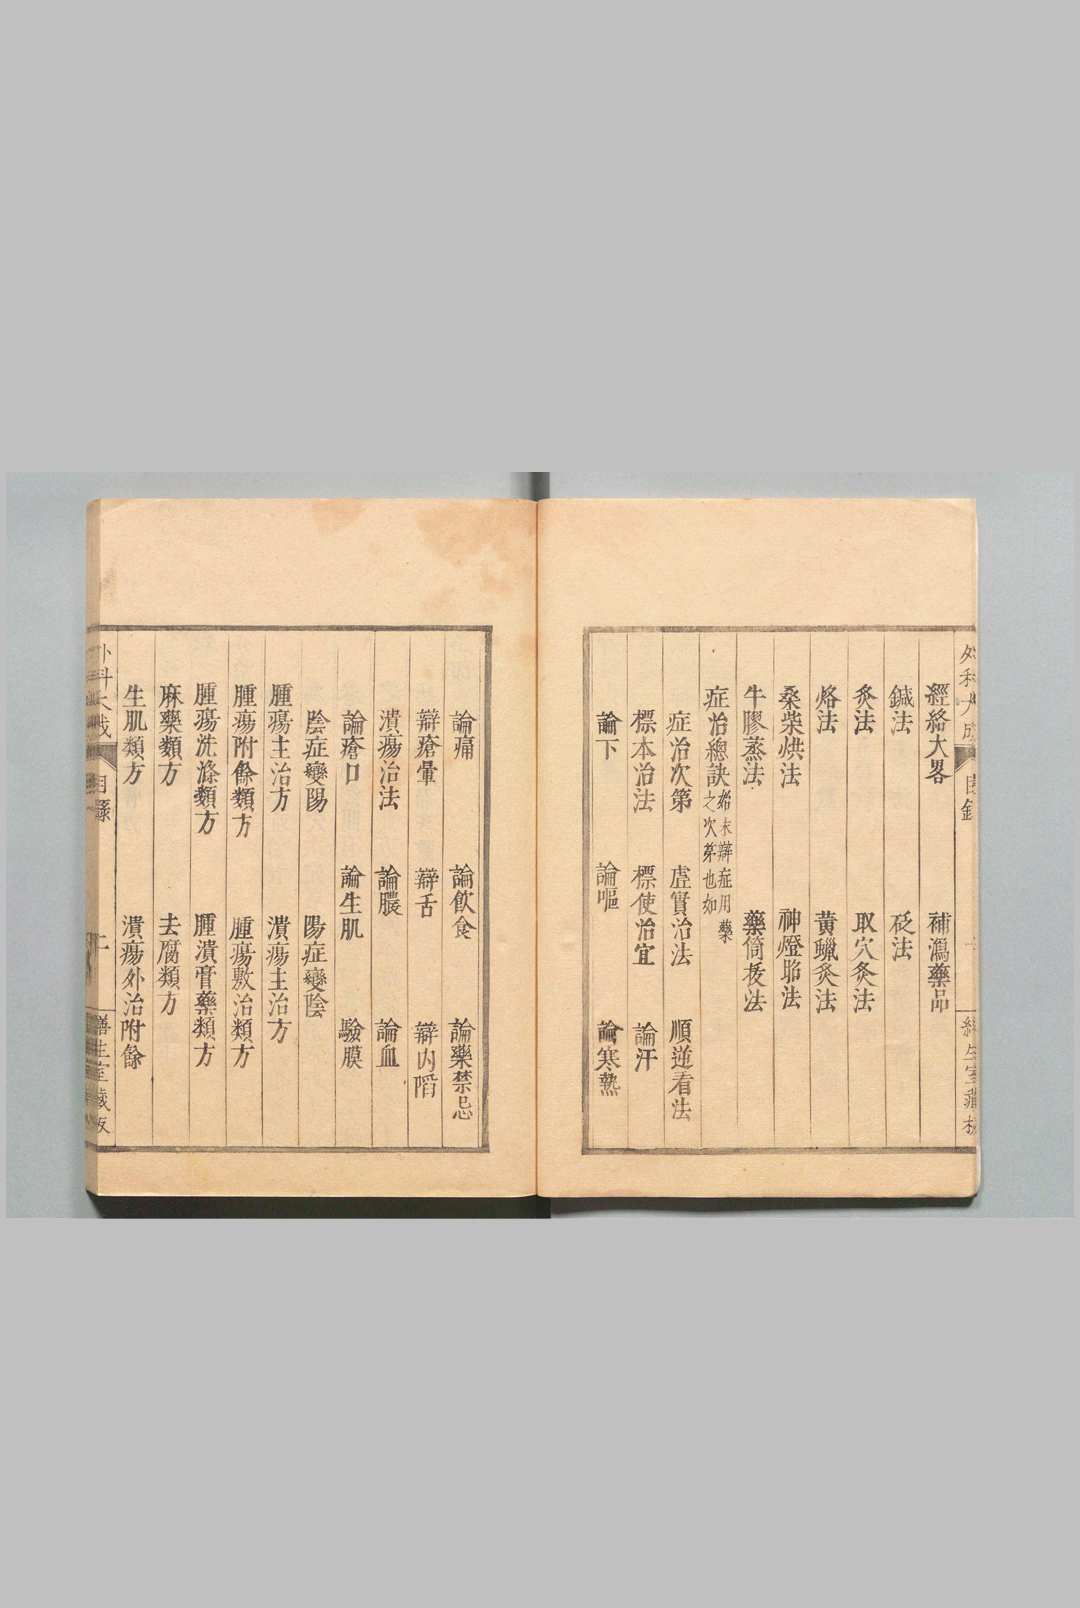 經絡大畧 補瀉藥品
鍼法 砭法
灸法 取穴灸法
烙法 黄蠟灸法
桑柴烘法 神燈照法
牛膠蒸法 藥筒拔法
症治總訣 始末辯症用藥之次第也如
症治次第 虛實治法 順逆看法
標本治法 標使治宜 論汗
論下 論嘔 論寒熱
論痛 論飲食 論藥禁忌
辯瘡暈 辯舌 辯内陷
潰瘍治法 論膿 論血
論瘡口 論生肌 驗膜
陰症變陽 陽症變陰
腫瘍主治方 潰瘍主治方
腫瘍附餘類方 腫瘍敷治類方
腫瘍洗滌類方 腫潰膏藥類方
麻藥類方 去腐類方
生肌類方 潰瘍外治附餘
外科大成 目錄 二 善生室藏板